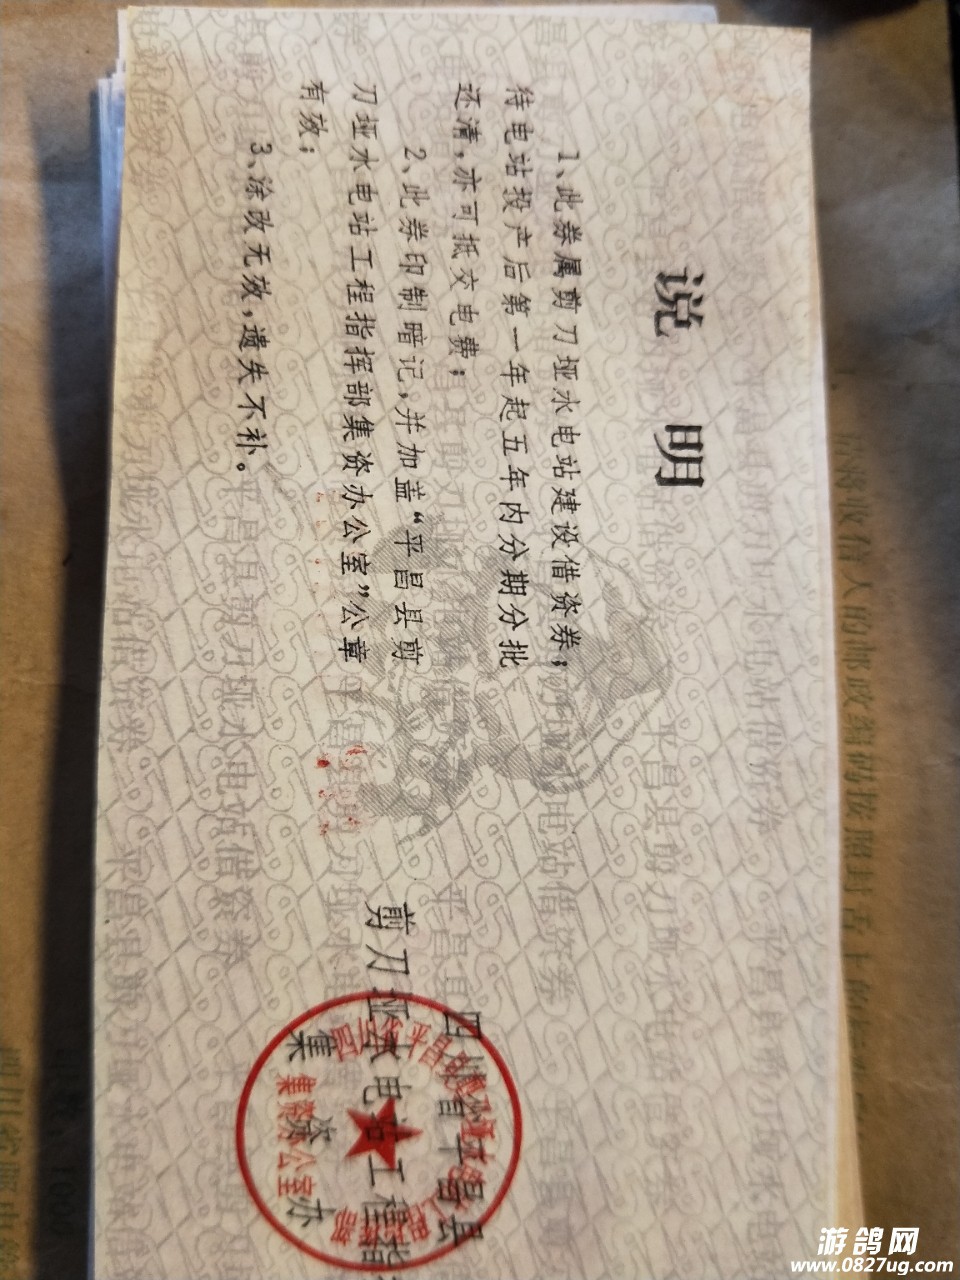 说 明
1、此券属剪刀垭水电站建设借资券；
待电站投产后第一年起五年内分期分批
还清，亦可抵交电费；
2、此券印制暗记，并加盖“平昌县剪
刀垭水电站工程指挥部集资办公室”公章
有效；
3、涂改无效，遗失不补。
四川省平昌县
剪刀垭水电站工程指
集 资 办
集资办公室
平昌县剪刀垭水电站借资券
收信人的邮政编码按照封舌上的
游鸽网
www.0827ug.com